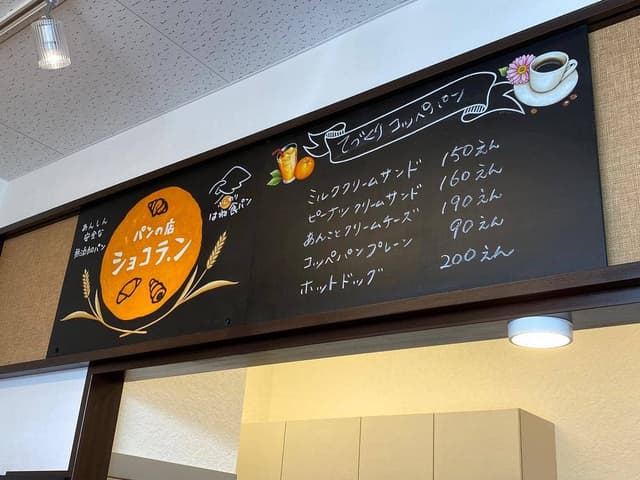 あんしん
安全な
無添加パン
パンの店
ショコラン
はね食パン
てづくりコッペパン
ミルククリームサンド 150えん
ピーナツクリームサンド 160えん
あんことクリームチーズ 190えん
コッペパンプレーン 90えん
ホットドッグ 200えん